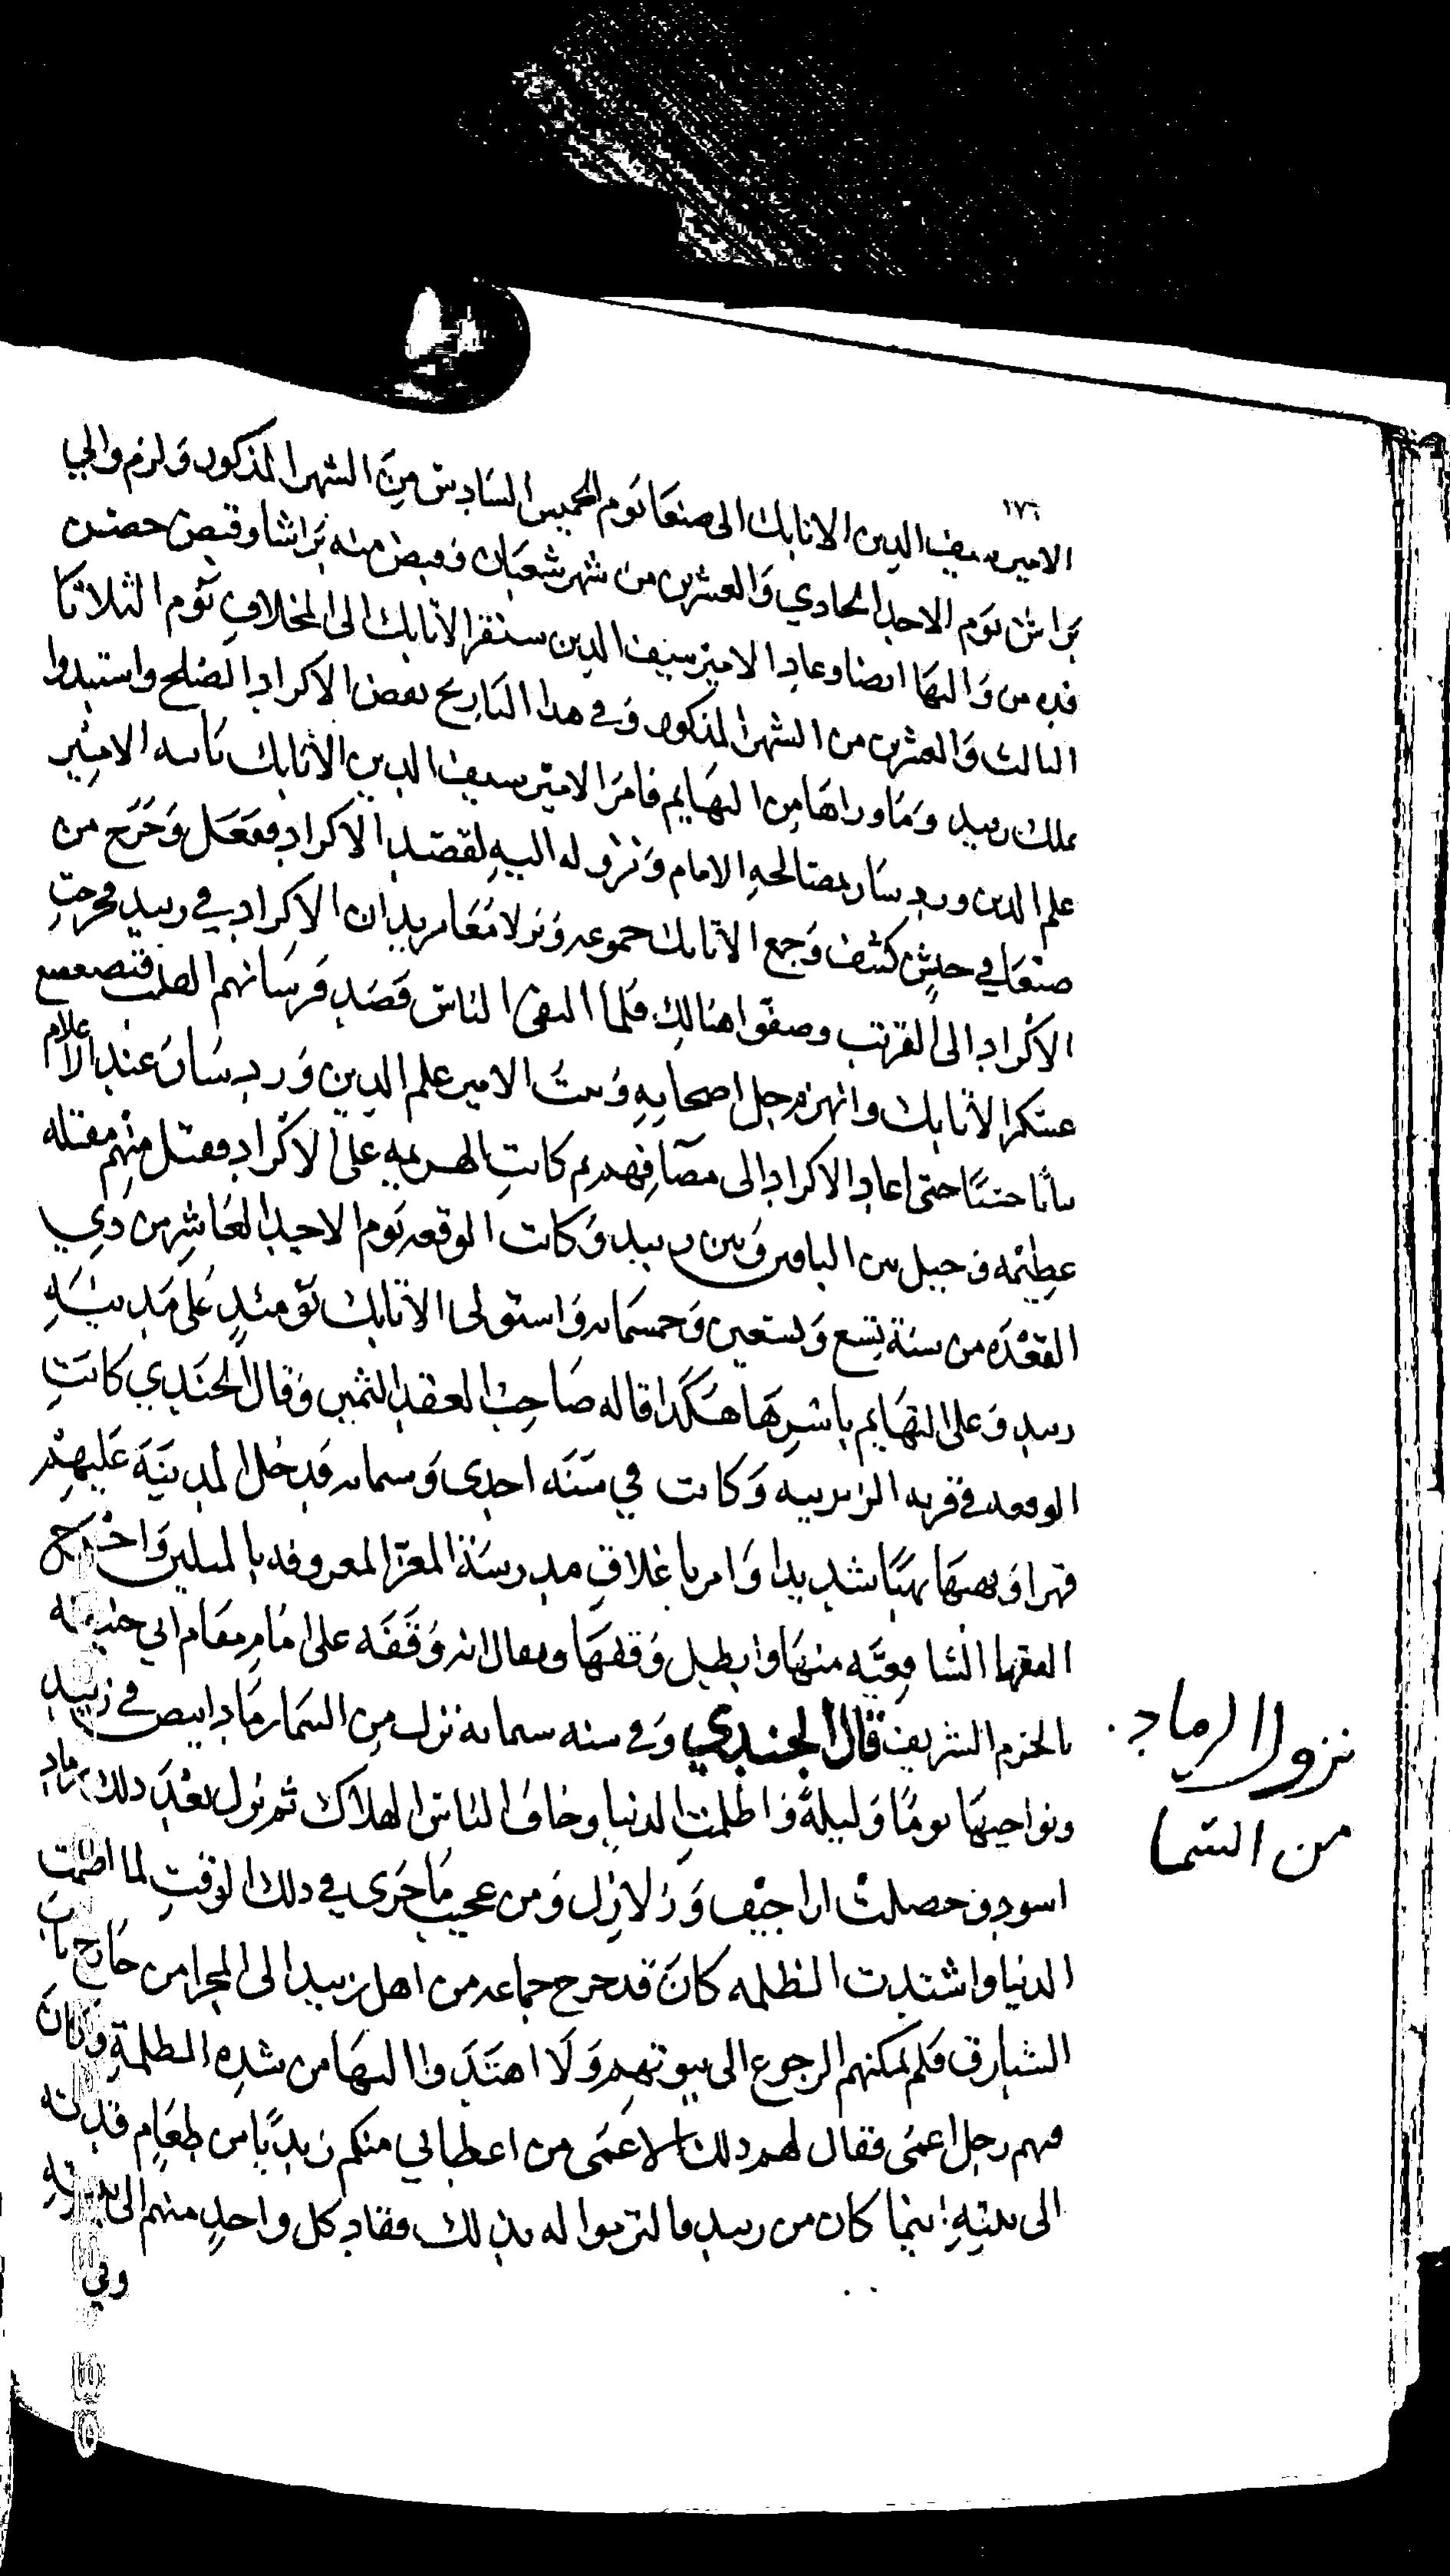 ١٧٦
الامير سيف الدين الاتابك الى صنعا يوم الخميس السادس من الشهر المذكور ولزم والي
براش يوم الاحد الحادي والعشرين من شهر شعبان فقبض منه براشا وقبض حصن
فده من واليها ايضا وعاد الامير سيف الدين سنقر الاتابك الى المخلاف يوم الثلاثا
الثالث والعشرين من الشهر المذكور وفي هذا التاريخ نقض الاكراد الصلح واستبدوا
بملك زبيد وما وراها من التهايم فامر الامير سيف الدين الاتابك نايبه الامير
علم الدين وردسار بمصالحه الامام ونزوله اليه لقصد الاكراد ففعل وخرج من
صنعا في جيش كثيف وجمع الاتابك جموعه ونزلا معا يريدان الاكراد في زبيد فخرجت
الاكراد الى القرتب وصفوا هنالك فلما التقى الناس قصد فرسانهم القلب فتضعضع
عسكر الاتابك وانهزم جل اصحابه وثبت الامير علم الدين وردسار عند الاعلام
ثباتا حسنا حتى اعاد الاكراد الى مصافهم ثم كانت الهزيمه على الاكراد فقتل منهم مقتله
عظيمه في جبيل بين وبين زبيد وكانت الوقعه يوم الاحد العاشر من ذي
القعده من سنة تسع وتسعين وخمسمايه واستولى الاتابك يومئذ على مدينه
زبيد وعلى التهايم باسرها هكذا قاله صاحب العقد الثمين وقال الجندي كانت
الوقعه في قريه الزريبيه وكانت في سنه احدى وستمايه فدخل المدينة عليهم
قهرا ونهبها نهبا شديدا وامر باغلاق مدرسة المعز المعروفه بالميلين واخرج
الفقها الشافعيه منها وابطل وقفها ويقال انه وقفه على امام مقام ابي حنيفه
بالحرم الشريف قال الجندي وفي سنه ستمايه نزل من السما رماد ابيض في زبيد
ونواحيها يوما وليلة فاظلمت الدنيا وخاف الناس الهلاك ثم نزل بعد ذلك رماد
اسود وحصلت اراجيف وزلازل ومن عجيب ما جرى في ذلك الوقت لما اظلمت
الدنيا واشتدت الظلمه كان قد خرج جماعه من اهل زبيد الى المجرا من خارج باب
الشبارق فلم يمكنهم الرجوع الى بيوتهم ولا اهتدوا اليها من شده الظلمة وكان
فيهم رجل اعمى فقال لهم ذلك الاعمى من اعطاني منكم زبديا من طعام قدته
الى بيته اينما كان من زبيد فالتزموا له بذلك فقاد كل واحد منهم الى بيته
وفي
نزول الرماد
من السما